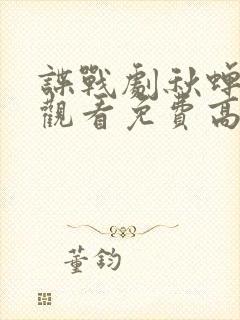 諜戰劇秋蟬
觀看免費高
董鈞